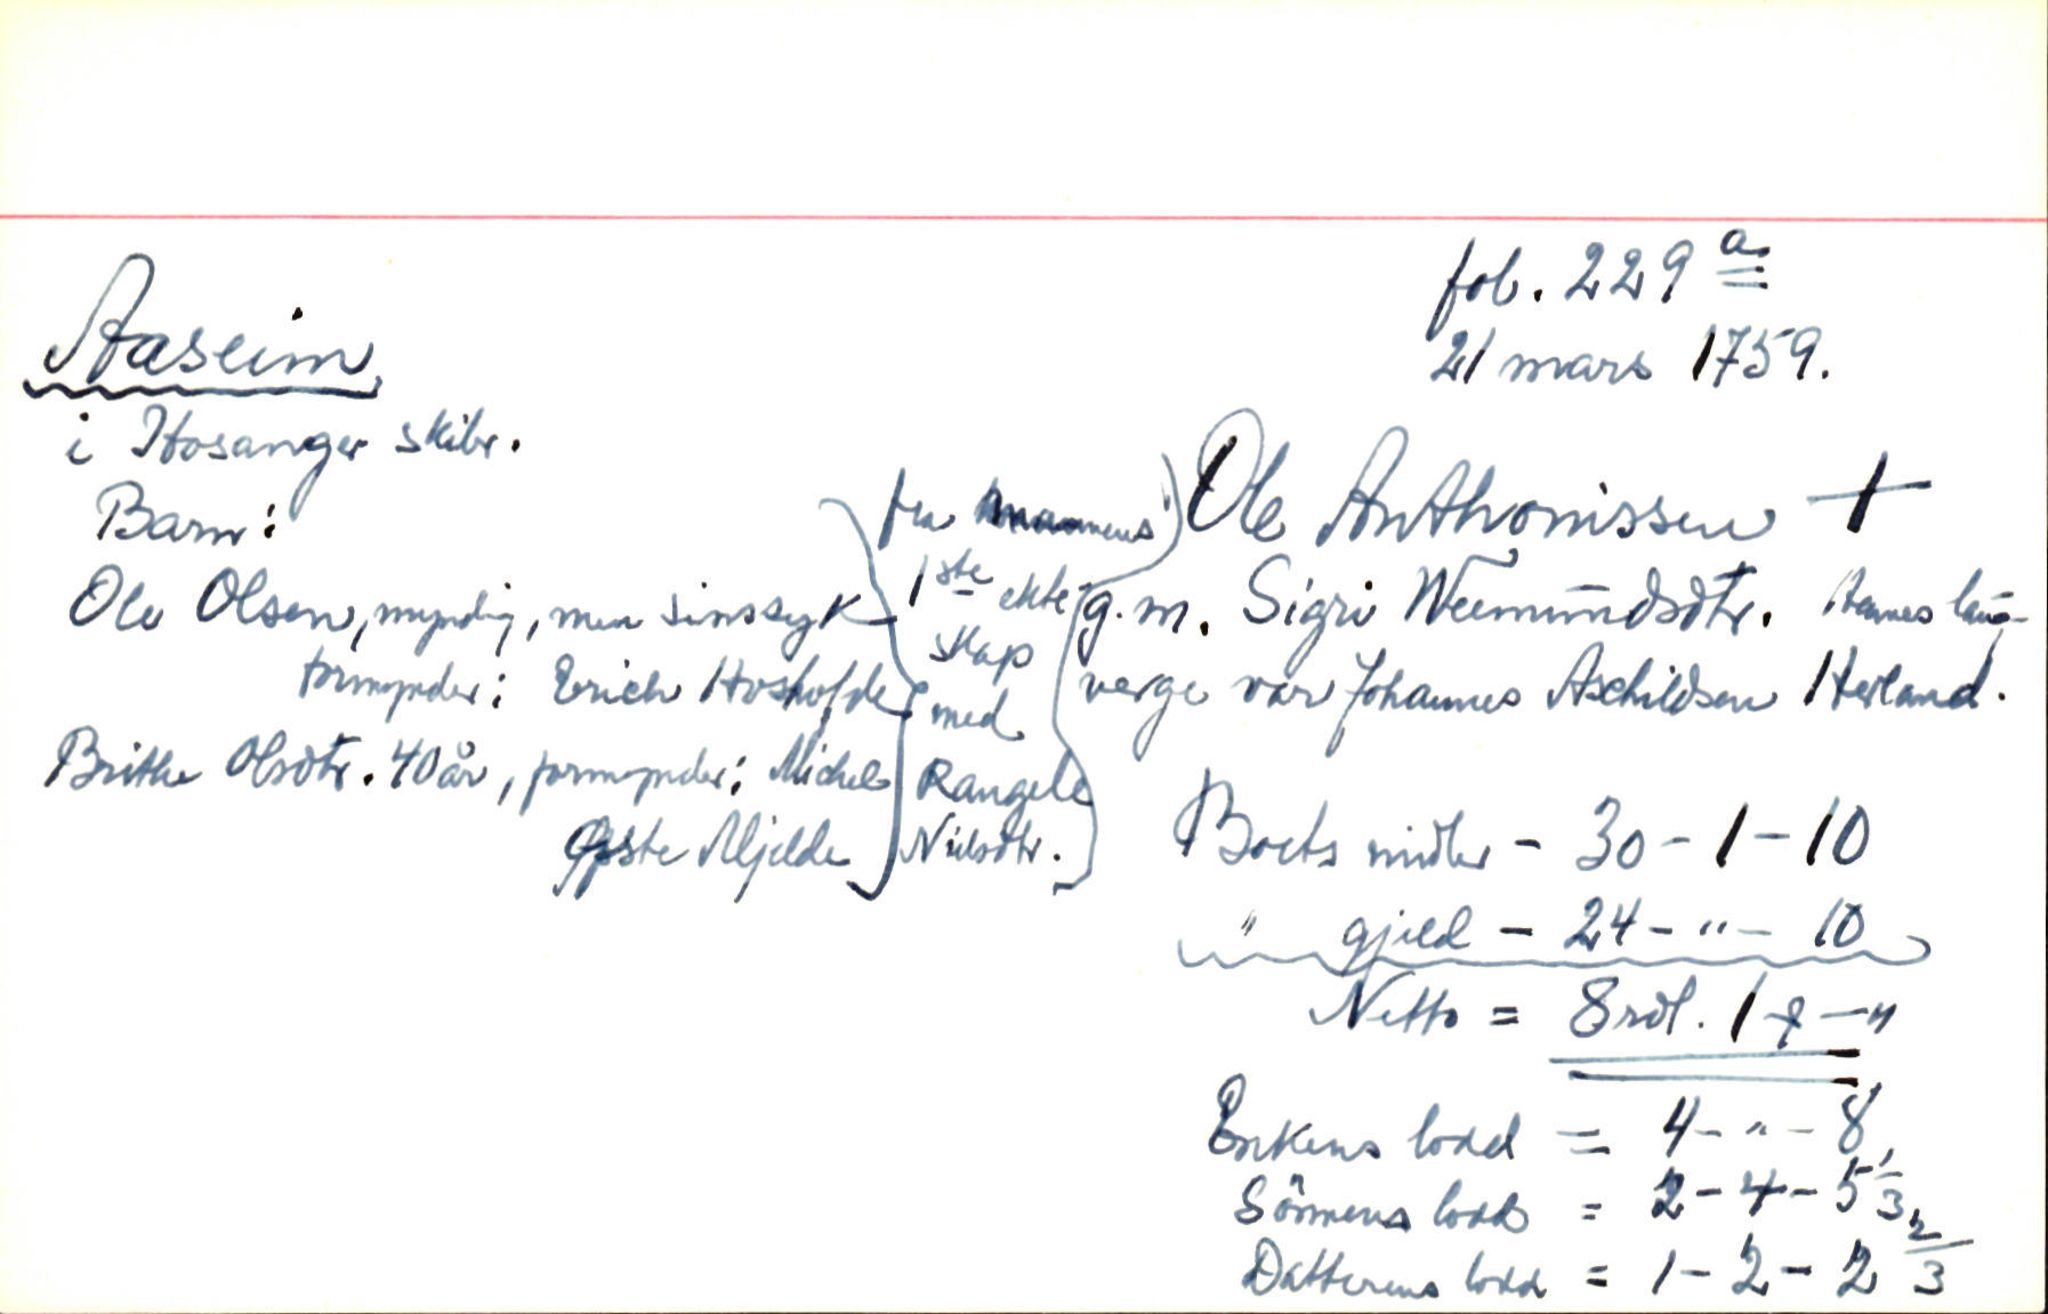 fol. 229 a
21 mars 1759.
Aaseim
i Hosanger skibr.
Barn:
Ole Olsen, myndig, men sinssyk
formynder: Erich Hoshofde
Brithe Olsdtr. 40 år, formynder: Michel
Øfste Mjelde
fra mannens
1ste ekte
skap
med
Rangele
Nielsdtr.
Ole Anthonissen +
g. m. Sigri Weemundsdtr. Hennes laug-
verge var Johannes Aschildsen Herland.
Boets midler - 30 - 1 - 10
" gjeld - 24 - " - 10
Netto = 8 rdl. 1 - "
Enkens lodd = 4 - " - 8
Sönnens lodd = 2 - 4 - 5 1/3
Datterens lodd = 1 - 2 - 2 2/3